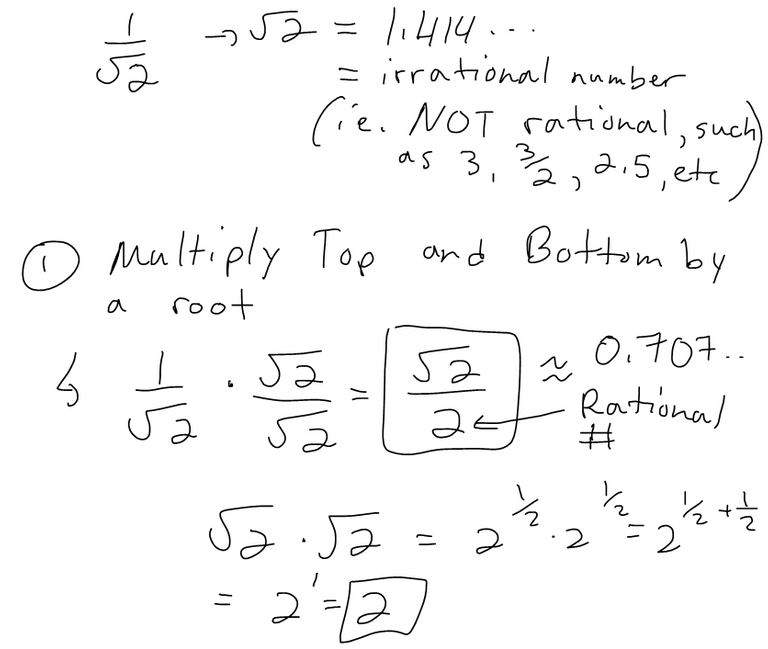 1/√2 → √2 = 1.414...
= irrational number
(ie. NOT rational, such
as 3, 3/2, 2.5, etc)
① Multiply Top and Bottom by
a root
↳ 1/√2 · √2/√2 = √2/2 ≈ 0.707..
← Rational
#
√2 · √2 = 2^1/2 · 2^1/2 = 2^1/2 + 1/2
= 2^1 = 2